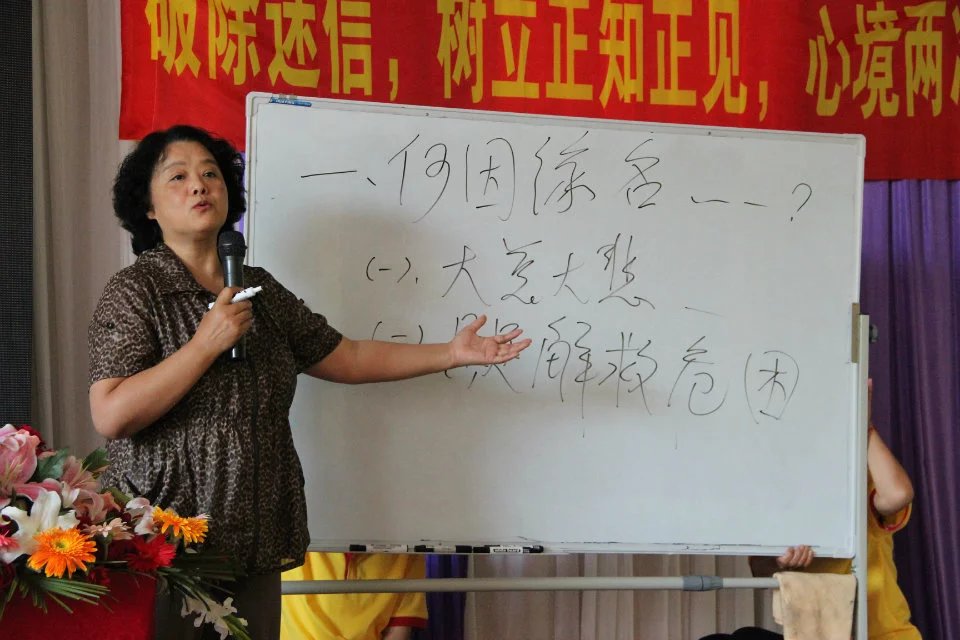 破除迷信，树立正知正见，心境两
一、何因缘名——？
(一)、大慈大悲
解救危困